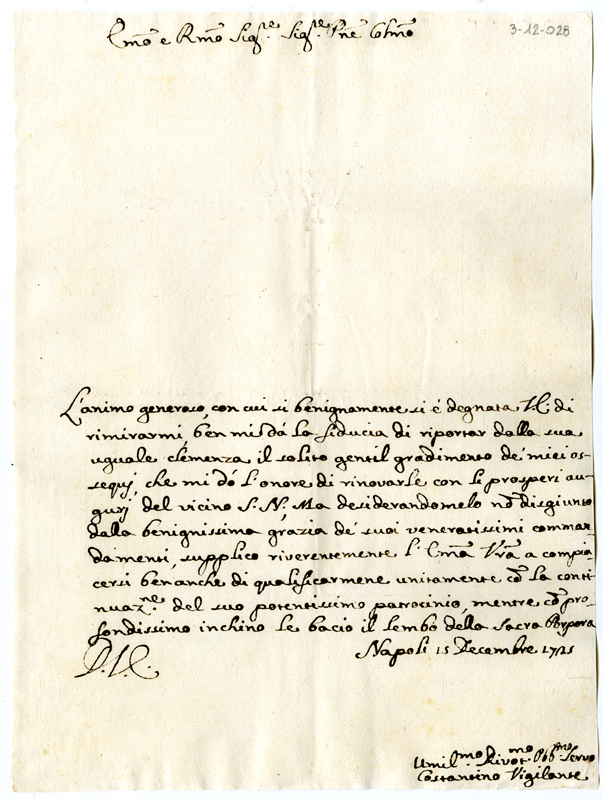 3-12-028
Emõ e Rmõ Sig.re Sig.re Pñe Colmõ
L'animo generoso, con cui si benignamente si è degnata V.E. di
rimirarmi, ben mi dà la fiducia di riportar dalla sua
uguale clemenza il solito gentil gradimento de' miei os-
sequj, che mi dò l'onore di rinovarle con li prosperi au-
gurj del vicino S. N., Ma desiderandomelo nõ disgiunto
dalla benignissima grazia de' suoi veneratissimi comman-
damenti, supplico riverentemente l'Emã Vrã a compia
cersi benanche di qualificarmene unitamente cõ la conti
nuaz.ne del suo potentissimo patrocinio, mentre cõ pro-
fondissimo inchino le bacio il lembo della Sacra Porpora
Napoli 15 Decembre
D.V.E.
Umil.mo Divot.mo Obb.mo Servo
Costantino Vigilante